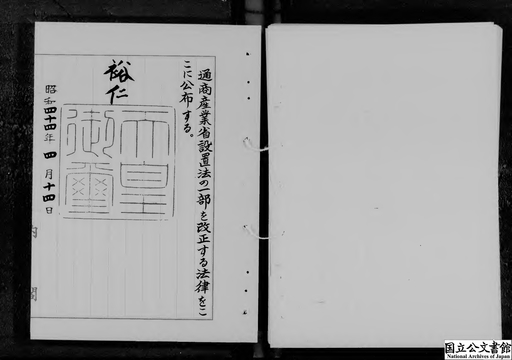 通商産業省設置法の一部を改正する法律をこ
こに公布する。
裕仁
天皇御璽
昭和四十四年四月十四日
内
閣
国立公文書館
National Archives of Japan